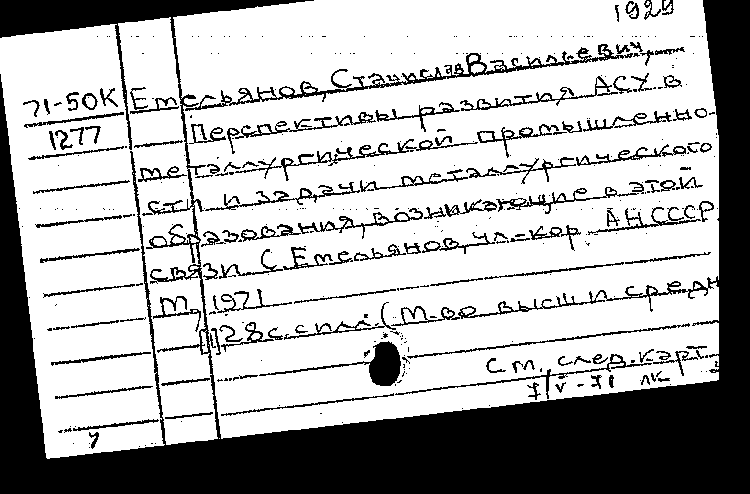 1929
71-50К Емельянов, Станислав Васильевич,
1277 Перспективы развития АСУ в
металлургической промышленно-
сти и задачи металлургического
образования, возникающие в этой
связи С. Емельянов, чл.-кор. АН СССР
М., 1971
[1], 28 с. с илл. (М-во высш и средн
см. след. карт
I/V-71 лк
у